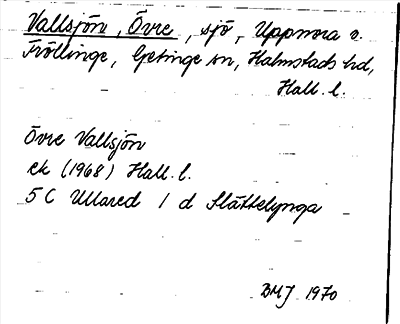 Vallsjön, Övre, sjö, Uppnora o.
Fröllinge, Getinge sn, Halmstads hd,
Hall. l.
Övre Vallsjön
ek (1968) Hall. l.
5 C Ullared 1 d Slättelynga
BMJ 1970